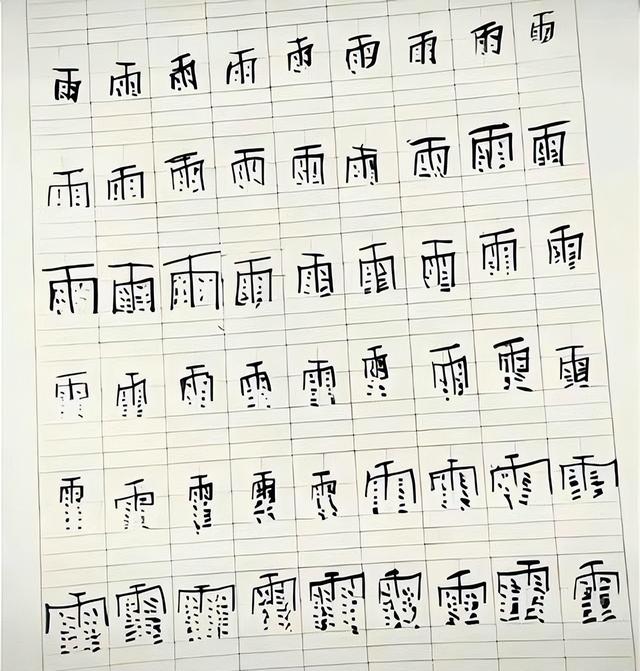 雨雨雨雨雨雨雨雨雨
雨雨雨雨雨雨雨雨雨
雨雨雨雨雨雨雨雨雨
雨雨雨雨雨雨雨雨雨
雨雨雨雨雨雨雨雨雨
雨雨雨雨雨雨雨雨雨